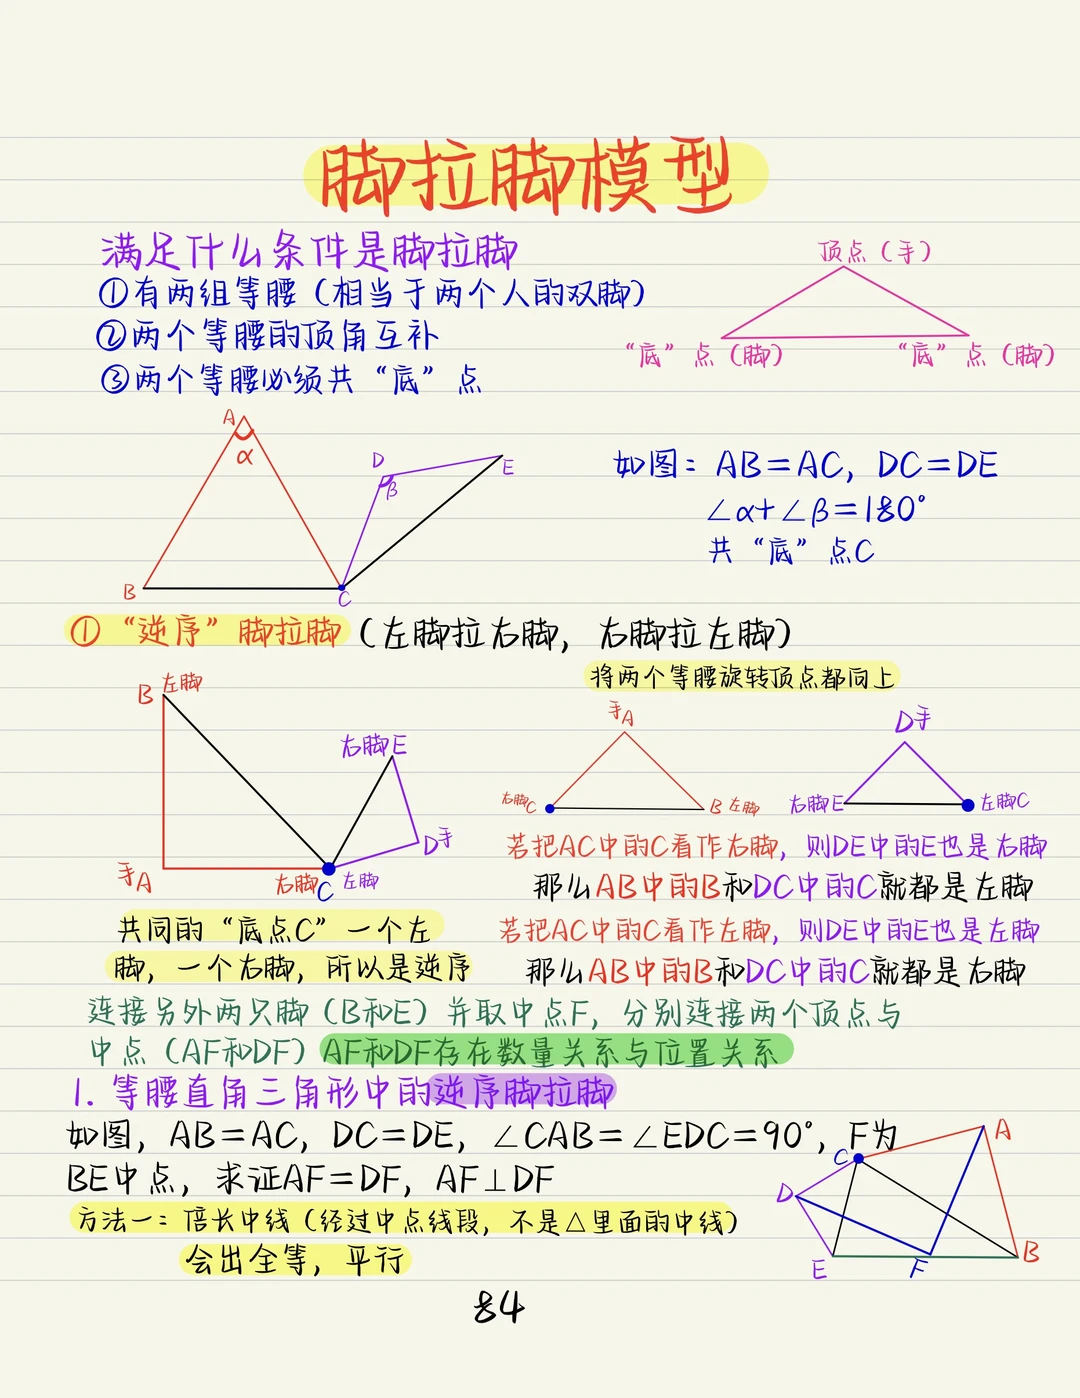 脚拉脚模型
满足什么条件是脚拉脚
①有两组等腰（相当于两个人的双脚）
②两个等腰的顶角互补
③两个等腰必须共“底”点
顶点（手）
“底”点（脚）
“底”点（脚）
A
α
B
C
D
β
E
如图：AB=AC，DC=DE
∠α+∠β=180°
共“底”点C
①“逆序”脚拉脚（左脚拉右脚，右脚拉左脚）
将两个等腰旋转顶点都向上
B左脚
右脚E
D手
手A
右脚C左脚
手A
右脚C
B左脚
D手
右脚E
左脚C
若把AC中的C看作右脚，则DE中的E也是右脚
那么AB中的B和DC中的C就都是左脚
若把AC中的C看作左脚，则DE中的E也是左脚
那么AB中的B和DC中的C就都是右脚
共同的“底点C”一个左
脚，一个右脚，所以是逆序
连接另外两只脚（B和E）并取中点F，分别连接两个顶点与
中点（AF和DF）AF和DF存在数量关系与位置关系
1. 等腰直角三角形中的逆序脚拉脚
如图，AB=AC，DC=DE，∠CAB=∠EDC=90°，F为
BE中点，求证AF=DF，AF⊥DF
方法一：倍长中线（经过中点线段，不是△里面的中线）
会出全等，平行
A
C
D
E
F
B
84